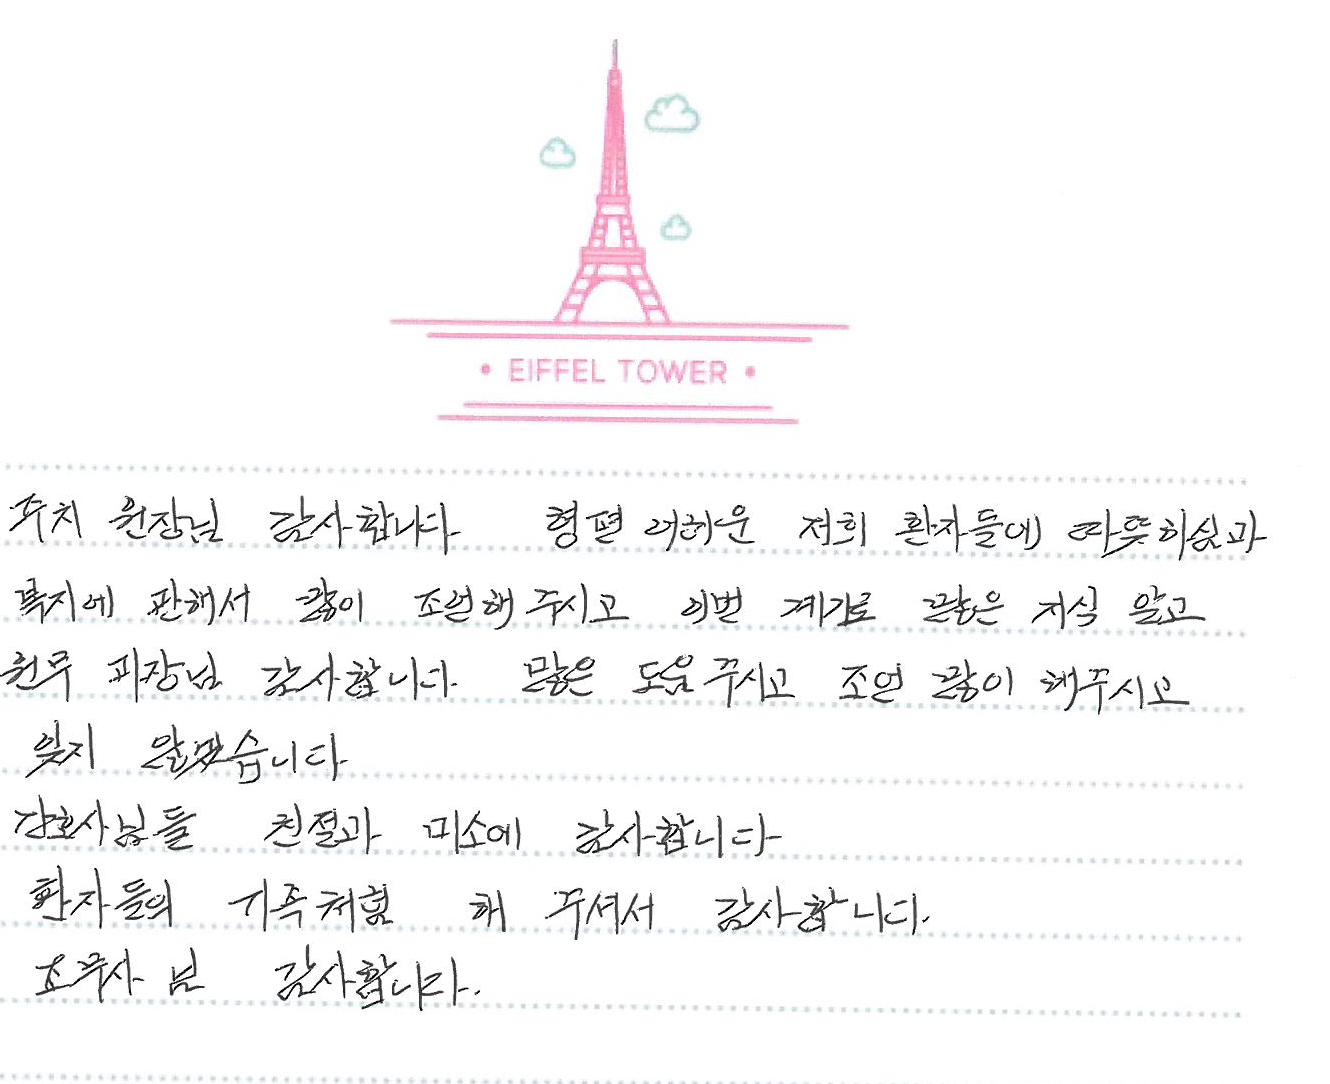 • EIFFEL TOWER •
주치 원장님 감사합니다 형편 어려운 저희 환자들에 따뜻하심과
복지에 관해서 많이 조언해 주시고 이번 계기로 많은 지식 알고
원무 과장님 감사합니다. 많은 도움 주시고 조언 많이 해주시고
잊지 않겠습니다
간호사님들 친절과 미소에 감사합니다
환자들의 가족처럼 해 주셔서 감사합니다.
조무사 님 감사합니다.